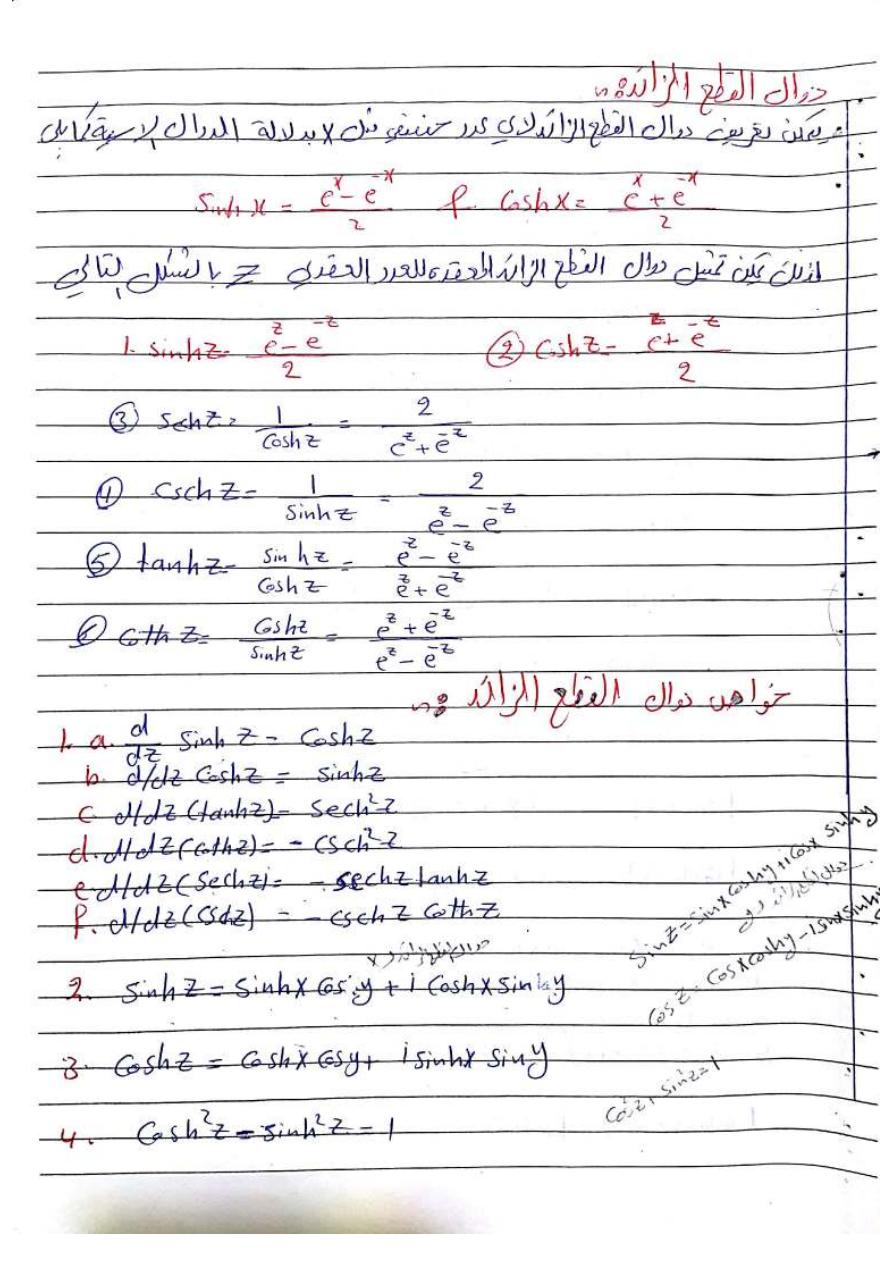 دوال القطع الزائد:
يمكن تعريف دوال القطع الزائد لاي عدد حقيقي مثل x بدلالة الدوال الاسية كما يلي:
Sinh x = (e^x - e^-x)/2 , Cosh x = (e^x + e^-x)/2
لذلك يمكن تمثيل دوال القطع الزائد المعقدة للعدد العقدي z بالشكل التالي
1. sinhz = (e^z - e^-z)/2 ② Coshz = (e^z + e^-z)/2
③ Sechz = 1/Coshz = 2/(e^z + e^-z)
④ Csch z = 1/Sinhz = 2/(e^z - e^-z)
⑤ tanhz = Sinhz/Coshz = (e^z - e^-z)/(e^z + e^-z)
⑥ Cothz = Coshz/Sinhz = (e^z + e^-z)/(e^z - e^-z)
خواص دوال القطع الزائد:
1. a. d/dz Sinh z = Coshz
b. d/dz Coshz = Sinhz
c d/dz (tanhz) = Sech²z
d. d/dz (cothz) = - CSch²z
e. d/dz (Sechz) = - sechz tanhz
f. d/dz (Cschz) = - csch z Coth z
دوال القطع الزائد لـ x
2. Sinhz = Sinhx Cosy + i Coshx Siny
3. Coshz = Coshx Cosy + i sinhx Siny
4. Cosh²z - sinh²z = 1
Sinz = Sinx coshy + i Cosx sinhy
دوال القطع الزائد لـ y
Cosz = Cosx coshy - i Sinx sinhy
Cos²z + Sin²z = 1